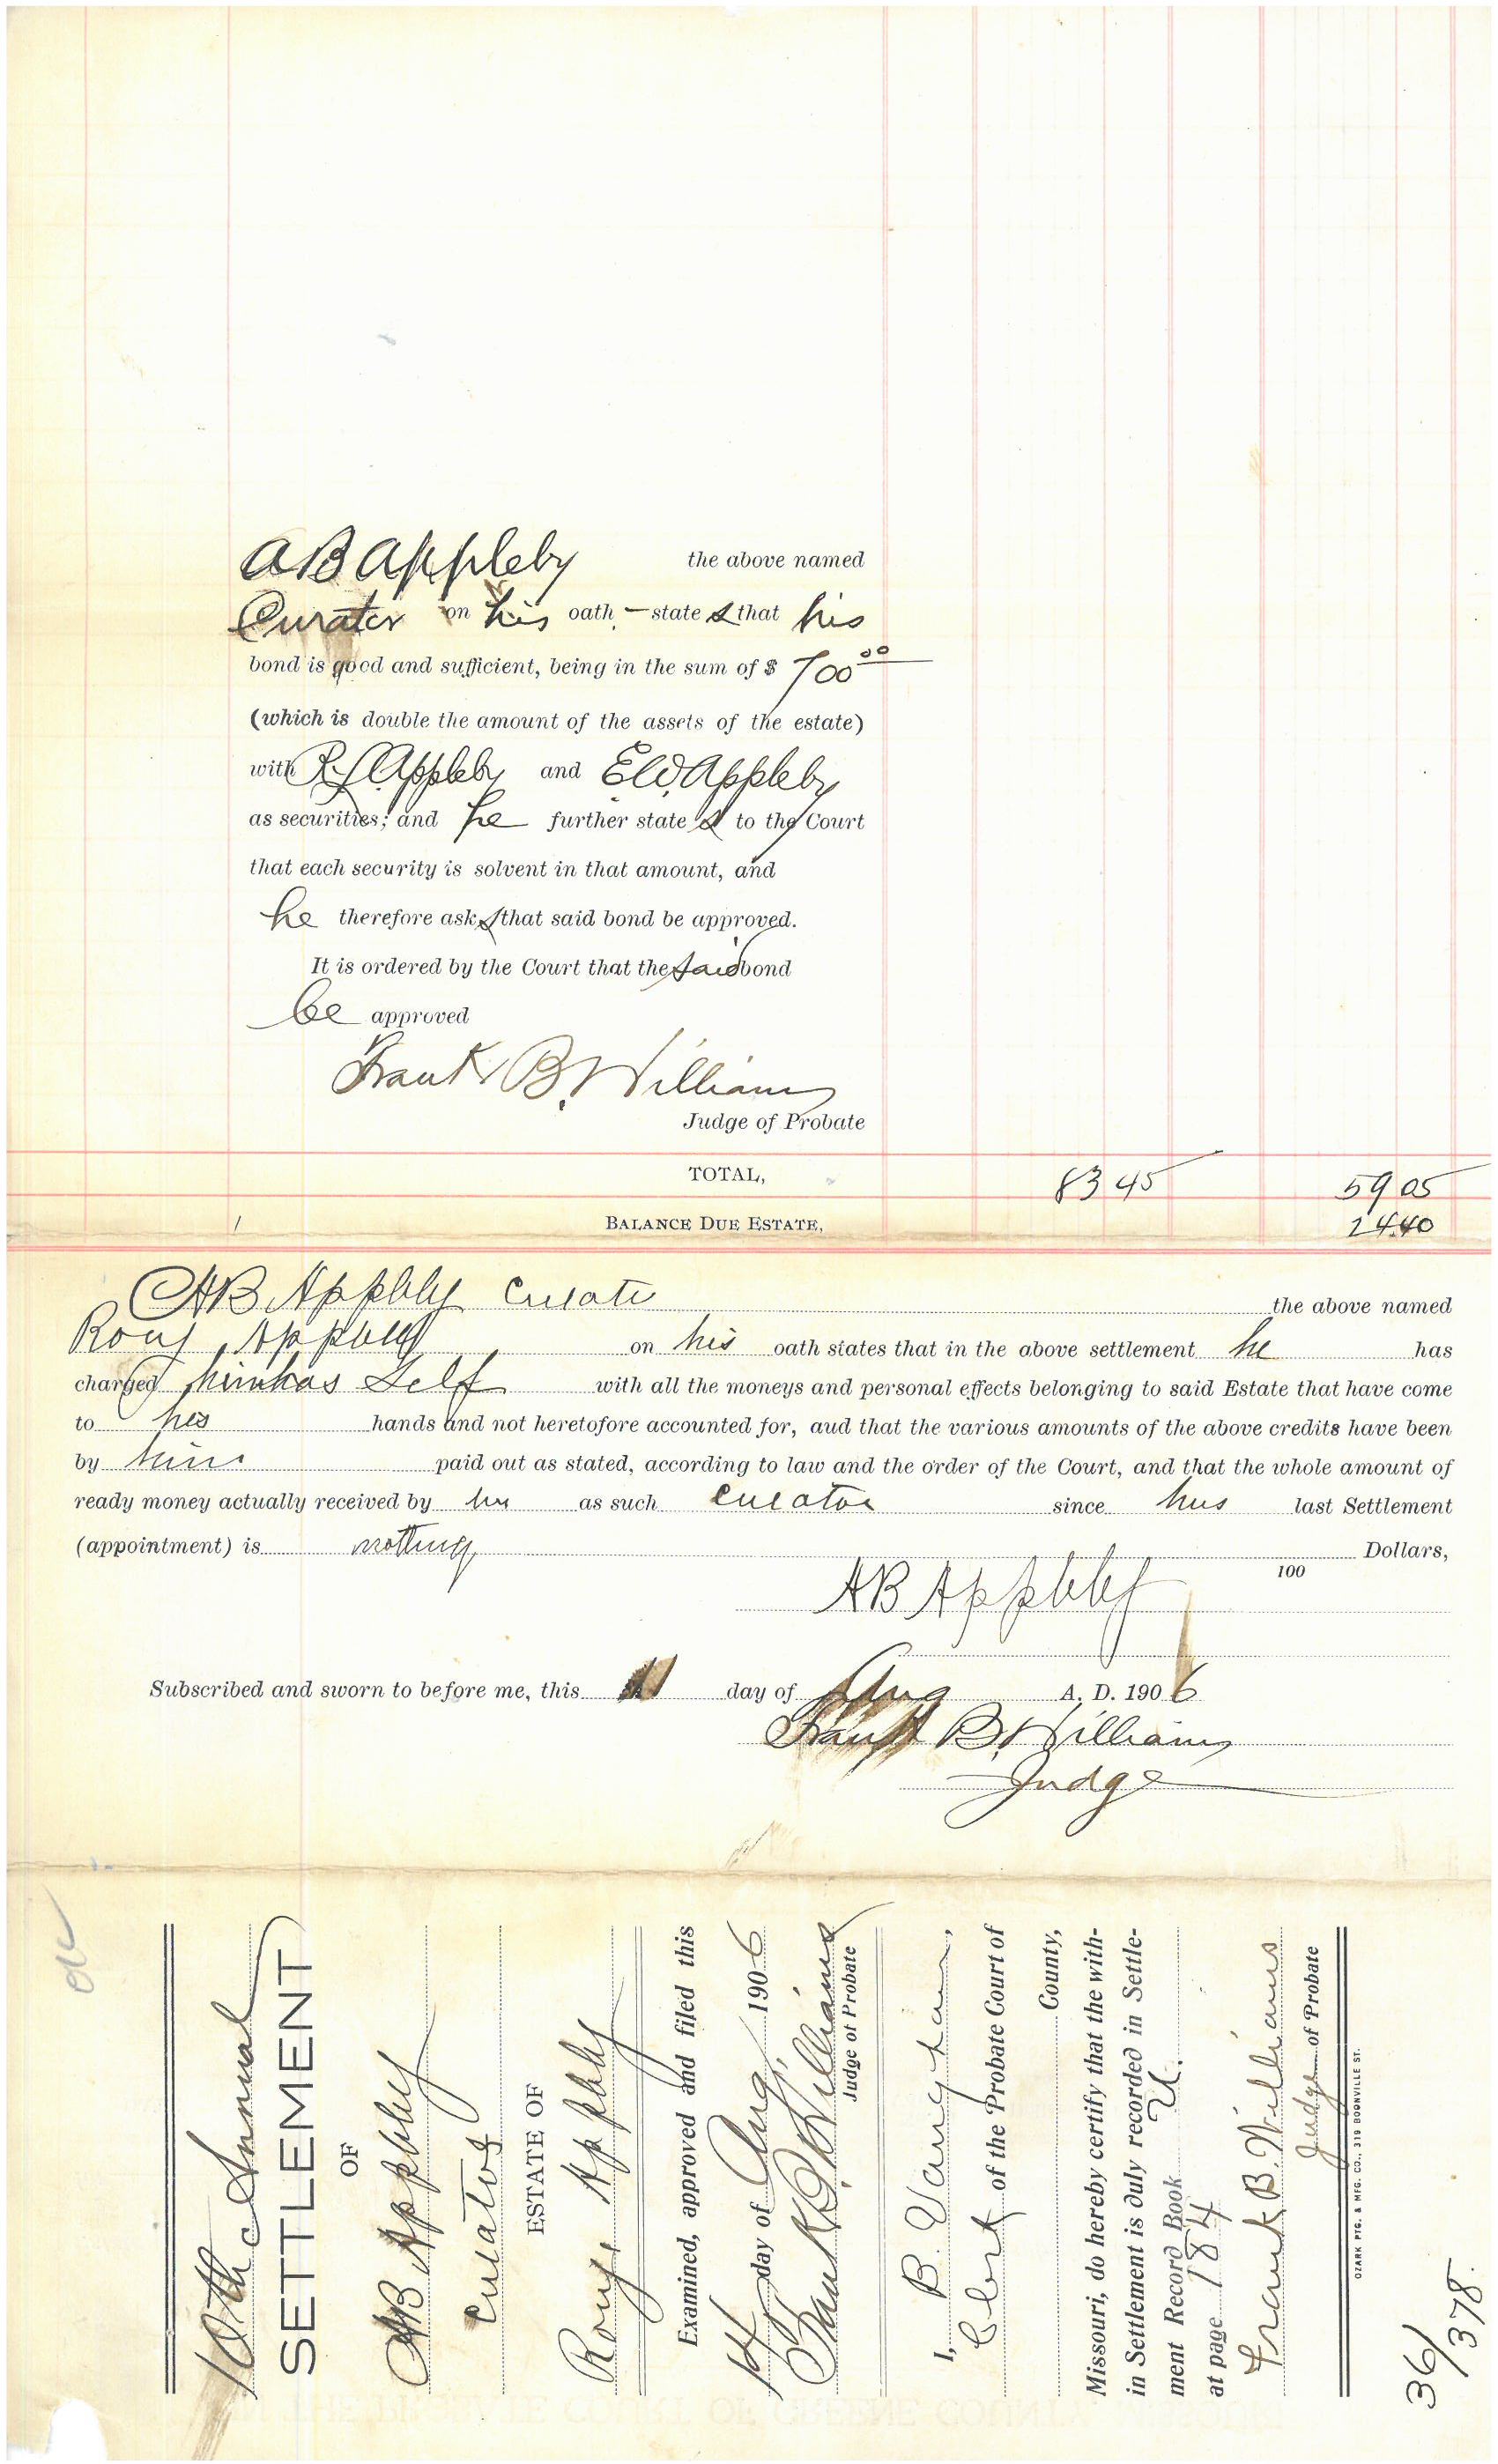 A B Appleby the above named
Curator on his oath - state s that his
bond is good and sufficient, being in the sum of $ 700 00
(which is double the amount of the assets of the estate)
with Appleby and E W Appleby
as securities; and he further state s to the Court
that each security is solvent in that amount, and
he therefore ask s that said bond be approved.
It is ordered by the Court that the said bond
be approved
Frank B. Williams
Judge of Probate
TOTAL, 83 45 59 05
BALANCE DUE ESTATE, 24.40
AB Appleby Curato the above named
Roy Appleby on his oath states that in the above settlement he has
charged Self with all the moneys and personal effects belonging to said Estate that have come
to his hands and not heretofore accounted for, aud that the various amounts of the above credits have been
by him paid out as stated, according to law and the order of the Court, and that the whole amount of
ready money actually received by as such curator since his last Settlement
(appointment) is nothing Dollars,
100
AB Appleby
Subscribed and sworn to before me, this day of Aug A. D. 190 6
Frank B. Williams
Judge
10th Annual
SETTLEMENT
OF
AB Appleby
Curator
ESTATE OF
Roy Appleby
Examined, approved and filed this
14 day of Aug, 190 6
Frank B. Williams
Judge of Probate
I, B. Vaughan,
Clerk of the Probate Court of
County,
Missouri, do hereby certify that the with-
in Settlement is duly recorded in Settle-
ment Record Book U.
at page 184
Frank B. Williams
Judge of Probate
OZARK PTG. & MFG. CO., 319 BOONVILLE ST.
36/378.